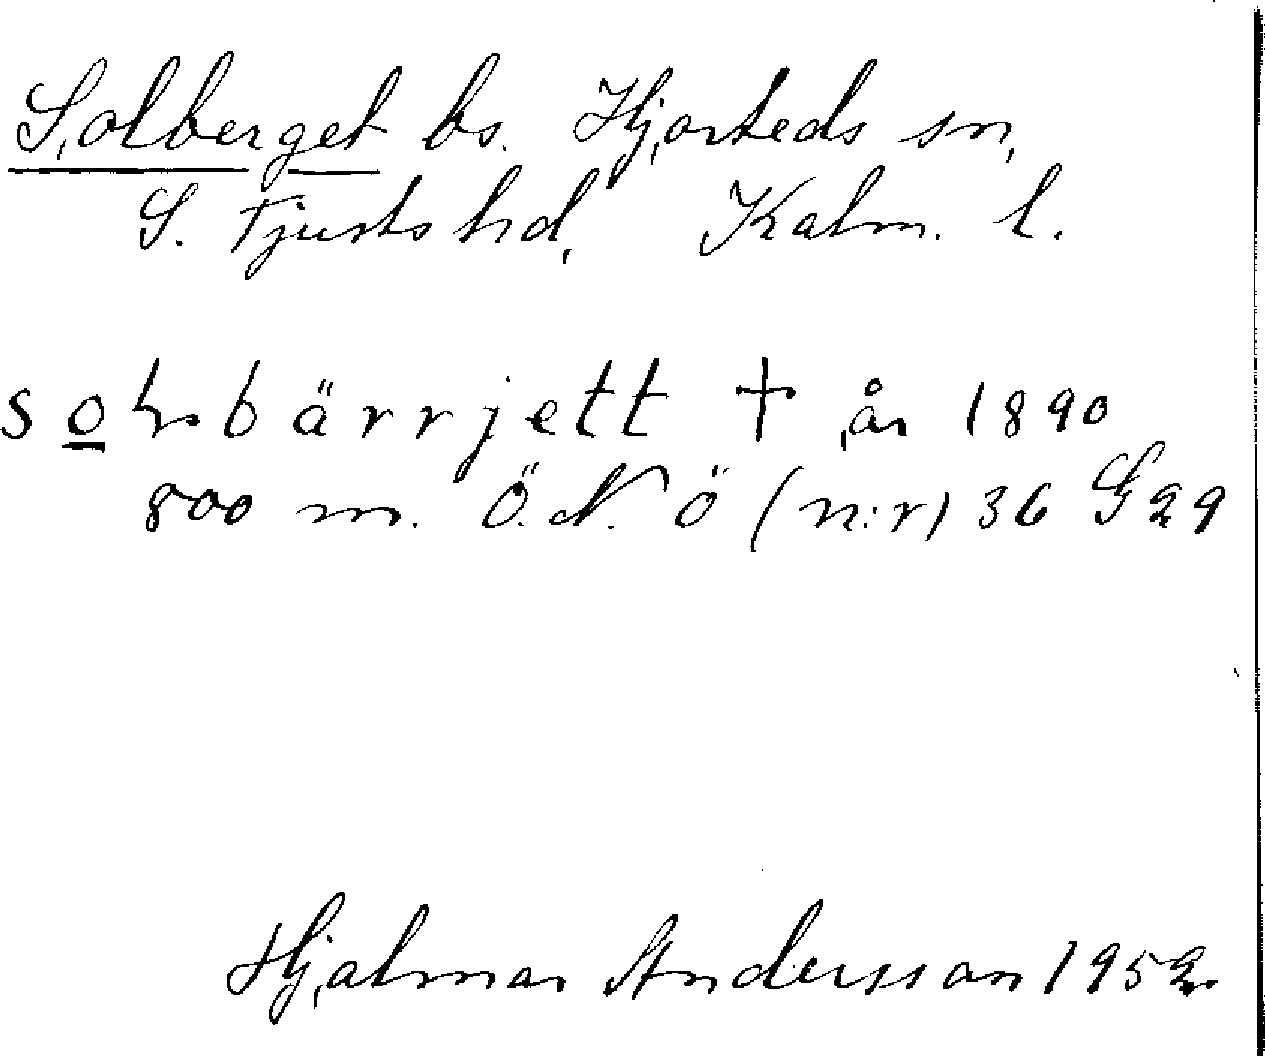 Solberget bs. Hjorteds sn,
S. Tjusts hd, Kalm. l.
solbärrjett † år 1890
800 m. Ö.N.ö (n:r) 36 G29
Hjalmar Andersson 1952